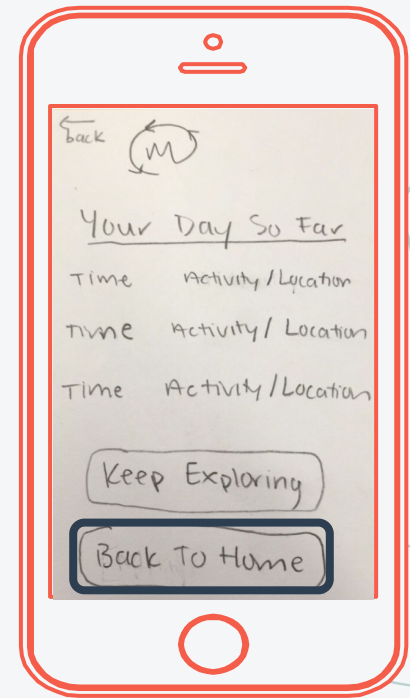 back
m
Your Day So Far
Time Activity/Location
Time Activity/Location
Time Activity/Location
Keep Exploring
Back To Home